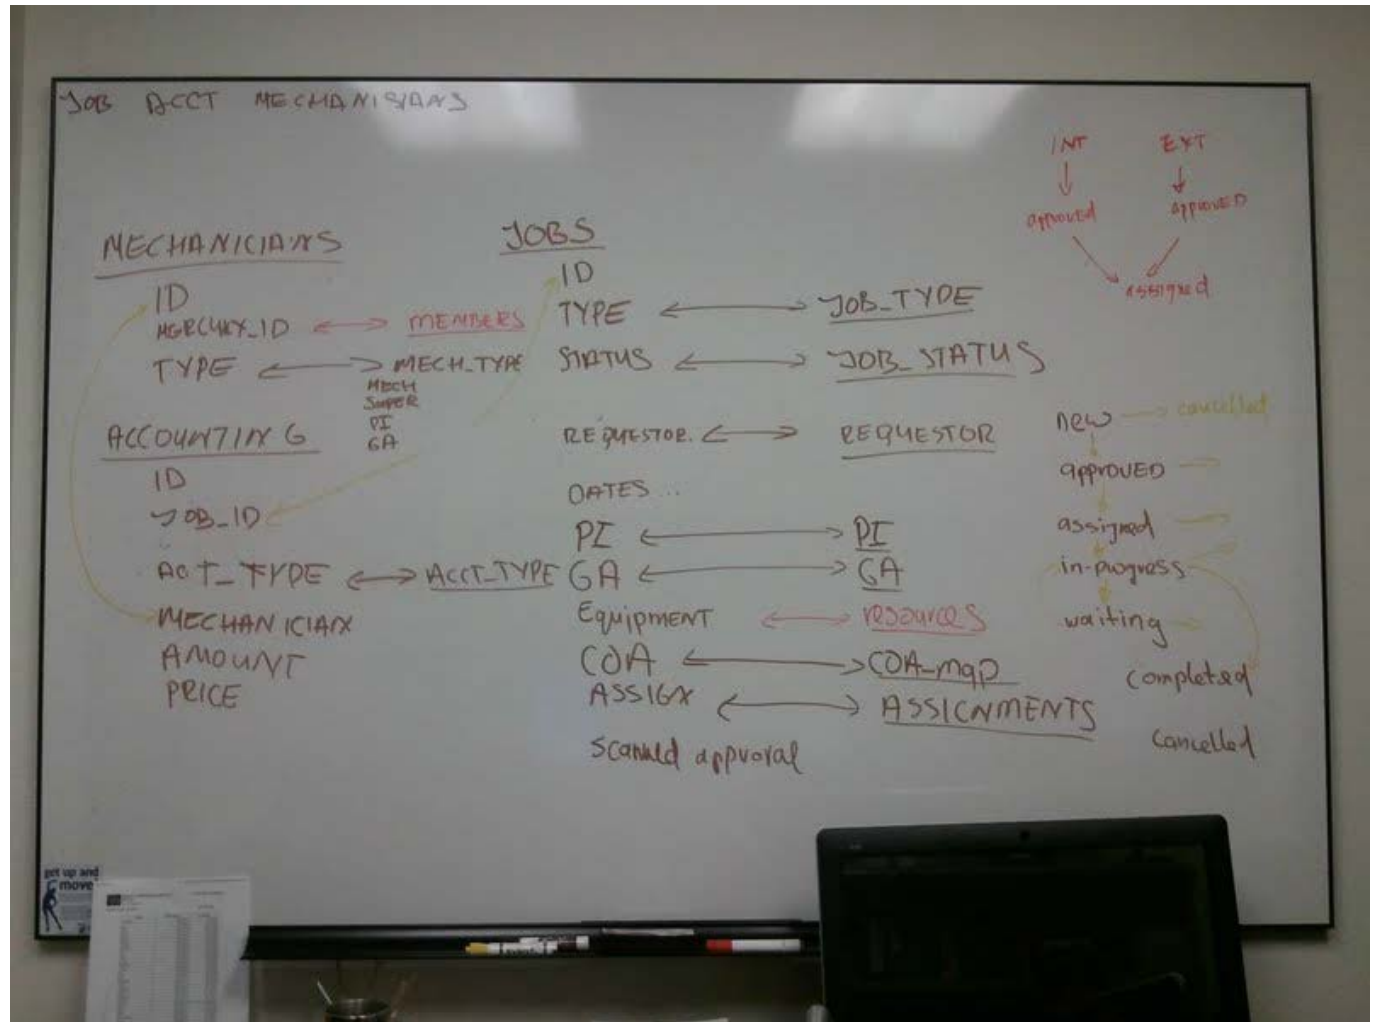 JOB ACCT MECHANISIANS
INT EXT
approved APPROVED
assigned
MECHANICIANS
ID
MEMBERS
TYPE MECH_TYPE
MECH
SUPER
PI
GA
ACCOUNTING
ID
JOB_ID
ACT_TYPE ACCT_TYPE
MECHANICIAN
AMOUNT
PRICE
JOBS
ID
TYPE JOB_TYPE
STATUS JOB_STATUS
REQUESTOR. REQUESTOR
DATES ...
PI PI
GA GA
EquipMENT resources
COA COA_map
ASSIGN ASSIGNMENTS
scanned approval
new cancelled
approved
assigned
in-progress
waiting
completed
cancelled
get up and
move